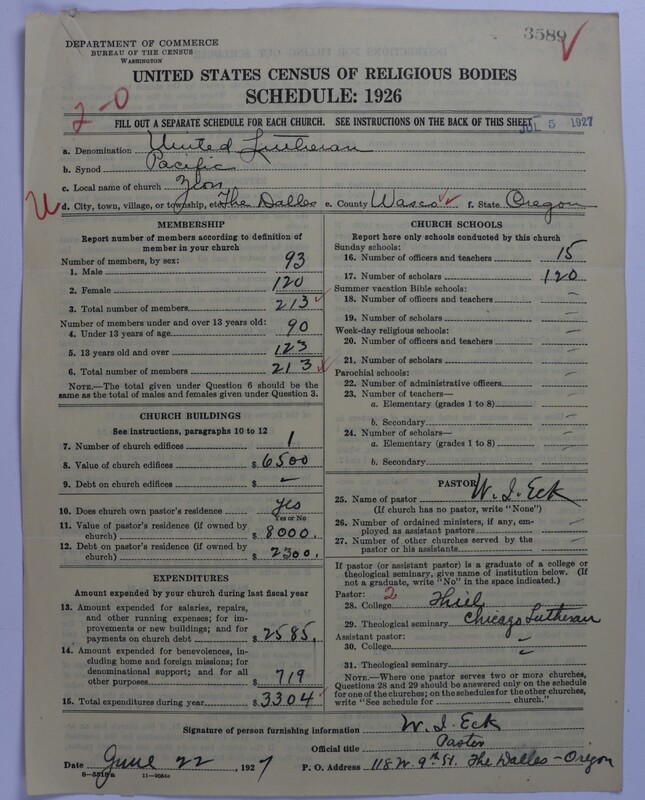 3589
DEPARTMENT OF COMMERCE
BUREAU OF THE CENSUS
WASHINGTON
UNITED STATES CENSUS OF RELIGIOUS BODIES
SCHEDULE: 1926
2-0
FILL OUT A SEPARATE SCHEDULE FOR EACH CHURCH. SEE INSTRUCTIONS ON THE BACK OF THIS SHEET
JUL 5 1927
a. Denomination United Lutheran
b. Synod Pacific
c. Local name of church Zion
d. City, town, village, or township, etc. The Dalles e. County Wasco f. State Oregon
MEMBERSHIP
Report number of members according to definition of
member in your church
Number of members, by sex:
1. Male 93
2. Female 120
3. Total number of members 213
Number of members under and over 13 years old:
4. Under 13 years of age 90
5. 13 years old and over 123
6. Total number of members 213
NOTE.—The total given under Question 6 should be
the same as the total of males and females given under Question 3.
CHURCH BUILDINGS
See instructions, paragraphs 10 to 12
7. Number of church edifices 1
8. Value of church edifices $ 6500
9. Debt on church edifices $ —
10. Does church own pastor's residence yes
Yes or No
11. Value of pastor's residence (if owned by
church) $ 8000.
12. Debt on pastor's residence (if owned by
church) $ 2300.
EXPENDITURES
Amount expended by your church during last fiscal year
13. Amount expended for salaries, repairs,
and other running expenses; for im-
provements or new buildings; and for
payments on church debt $ 2585.
14. Amount expended for benevolences, in-
cluding home and foreign missions; for
denominational support; and for all
other purposes $ 719
15. Total expenditures during year $ 3304
CHURCH SCHOOLS
Report here only schools conducted by this church
Sunday schools:
16. Number of officers and teachers 15
17. Number of scholars 120
Summer vacation Bible schools:
18. Number of officers and teachers —
19. Number of scholars —
Week-day religious schools:
20. Number of officers and teachers —
21. Number of scholars —
Parochial schools:
22. Number of administrative officers —
23. Number of teachers—
a. Elementary (grades 1 to 8) —
b. Secondary —
24. Number of scholars—
a. Elementary (grades 1 to 8) —
b. Secondary —
PASTOR
25. Name of pastor W. I. Eck
(If church has no pastor, write "None")
26. Number of ordained ministers, if any, em-
ployed as assistant pastors —
27. Number of other churches served by the
pastor or his assistants —
If pastor (or assistant pastor) is a graduate of a college or
theological seminary, give name of institution below. (If
not a graduate, write "No" in the space indicated.)
Pastor: 2
28. College Thiel
29. Theological seminary Chicago Lutheran
Assistant pastor:
30. College —
31. Theological seminary —
NOTE.—Where one pastor serves two or more churches,
Questions 28 and 29 should be answered only on the schedule
for one of the churches; on the schedules for the other churches,
write "See schedule for church."
Signature of person furnishing information W. I. Eck
Official title Pastor
Date June 22, 1927 P. O. Address 118 W. 9th St. The Dalles - Oregon